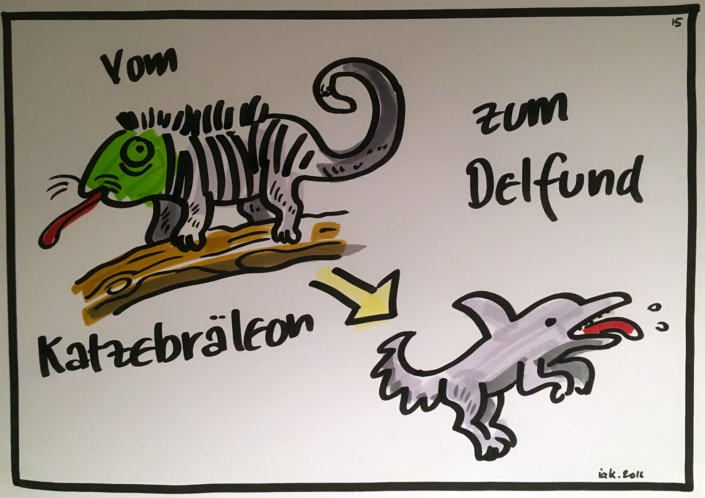 15
Vom
Katzebräleon
zum
Delfund
iak. 2016